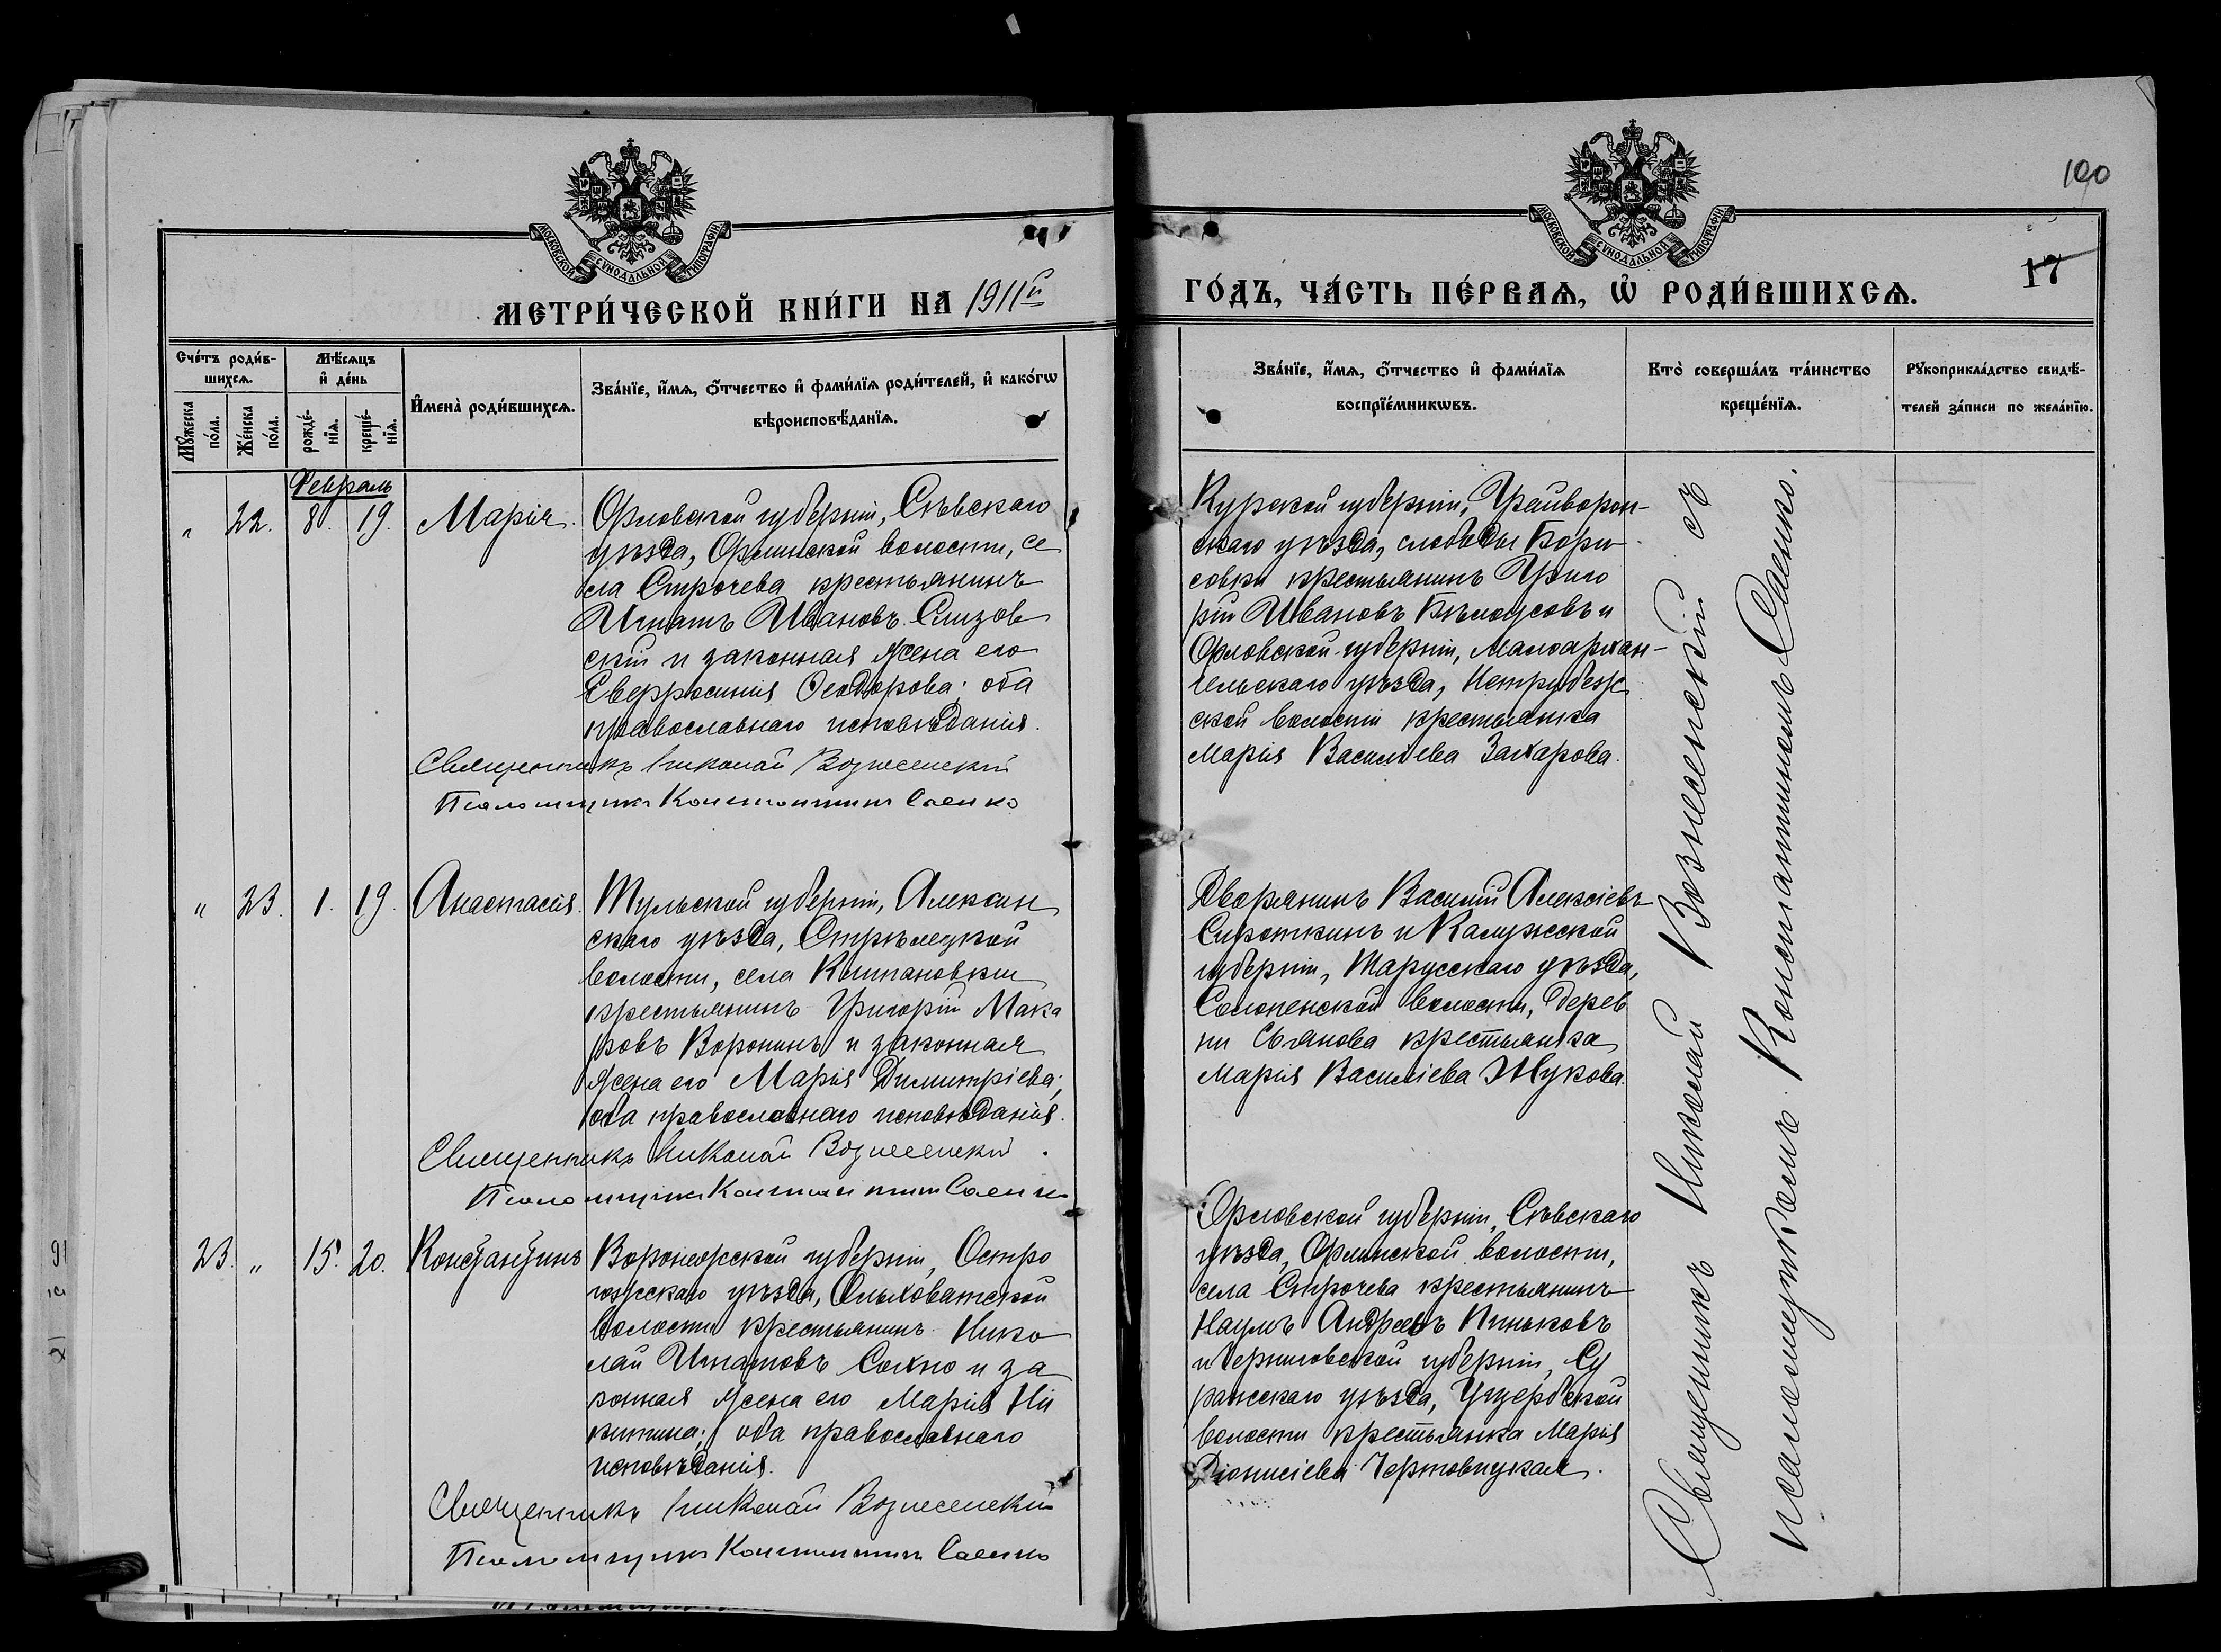 100
17
МОСКОВСКОЙ СѴНОДАЛЬНОЙ ТИПОГРАФІИ
МОСКОВСКОЙ СѴНОДАЛЬНОЙ ТИПОГРАФІИ
МЕТРИ́ЧЕСКОЙ КНИ́ГИ НА 1911й
ГО́ДЪ, ЧА́СТЬ ПЕ́РВАѦ, Ѡ҆ РОДИ́ВШИХСѦ.
Сче́тъ роди́в-
шихсѧ.
Мꙋ́жеска
по́ла.
Же́нска
по́ла.
Мѣ́сѧцъ
и҆ де́нь
рожде́-
нїѧ.
креще́-
нїѧ.
И҆мена̀ роди́вшихсѧ.
Зва́нїе, и҆́мѧ, ѻ҆́тчество и҆ фами́лїѧ роди́телей, и҆ како́гѡ
вѣроисповѣ́данїѧ.
Зва́нїе, и҆́мѧ, ѻ҆́тчество и҆ фами́лїѧ
воспрїе́мникѡвъ.
Кто̀ соверша́лъ та́инство
креще́нїѧ.
Рꙋкоприкла́дство свидѣ́-
телей за́писи по жела́нїю.
Февраль
" 22. 8. 19. Марія.
Орловской губерніи, Сѣвскаго
уѣзда, Орлинской волости, се
ла Строчева крестьянинъ
Игнатъ Ивановъ Слизов
скій и законная жена его
Евфросинія Ѳеодорова; оба
православнаго исповѣданія.
Священникъ Николай Вознесенскій
Псаломщикъ Константинъ Саенко
Курской губерніи, Грайворон-
скаго уѣзда, слободы Бори
совки крестьянинъ Григо
рій Ивановъ Бѣлоусовъ и
Орловской губерніи, Малоархан-
гельскаго уѣзда,
ской волости крестьянка
Марія Васильева Захарова.
" 23. 1. 19. Анастасія.
Тульской губерніи, Алексин
скаго уѣзда, Стрѣлецкой
волости, села
крестьянинъ Григорій Мака
ровъ Воронинъ и законная
жена его Марія Димитріева;
оба православнаго исповѣданія.
Священникъ Николай Вознесенскій.
Псаломщикъ Константинъ Саенко
Дворянинъ Василій Алексіевъ
Сироткинъ и Калужской
губерніи, Тарусскаго уѣзда,
Солопенской волости, дерев
ни Сьянова крестьянка
Марія Василіева Жукова.
23. " 15. 20. Константинъ
Воронежской губерніи, Остро
гожскаго уѣзда, Ольховатской
волости крестьянинъ Нико
лай Игнатовъ Сохно и за
конная жена его Марія Ни
китина; оба православнаго
исповѣданія.
Священникъ Николай Вознесенскій
Псаломщикъ Константинъ Саенко
Орловской губерніи, Сѣвскаго
уѣзда, Орлинской волости,
села Строчева крестьянинъ
Наумъ Андреевъ Пиньковъ
и Черниговской губерніи, Су
ражскаго уѣзда, Ущербской
волости крестьянка Марія
Діонисіева Чертовицкая.
Священникъ Николай Вознесенскій съ
псаломщикомъ Константиномъ Саенко.